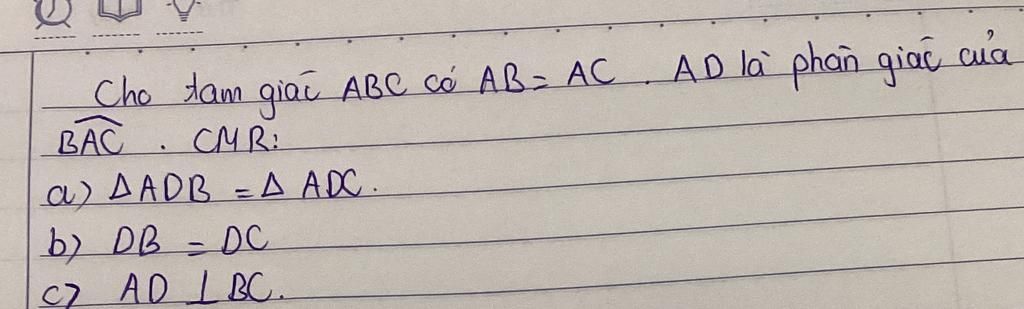 Cho tam giác ABC có AB = AC. AD là phân giác của
\widehat{BAC}. CMR:
a) ΔADB = ΔADC.
b) DB = DC
c) AD ⊥ BC.